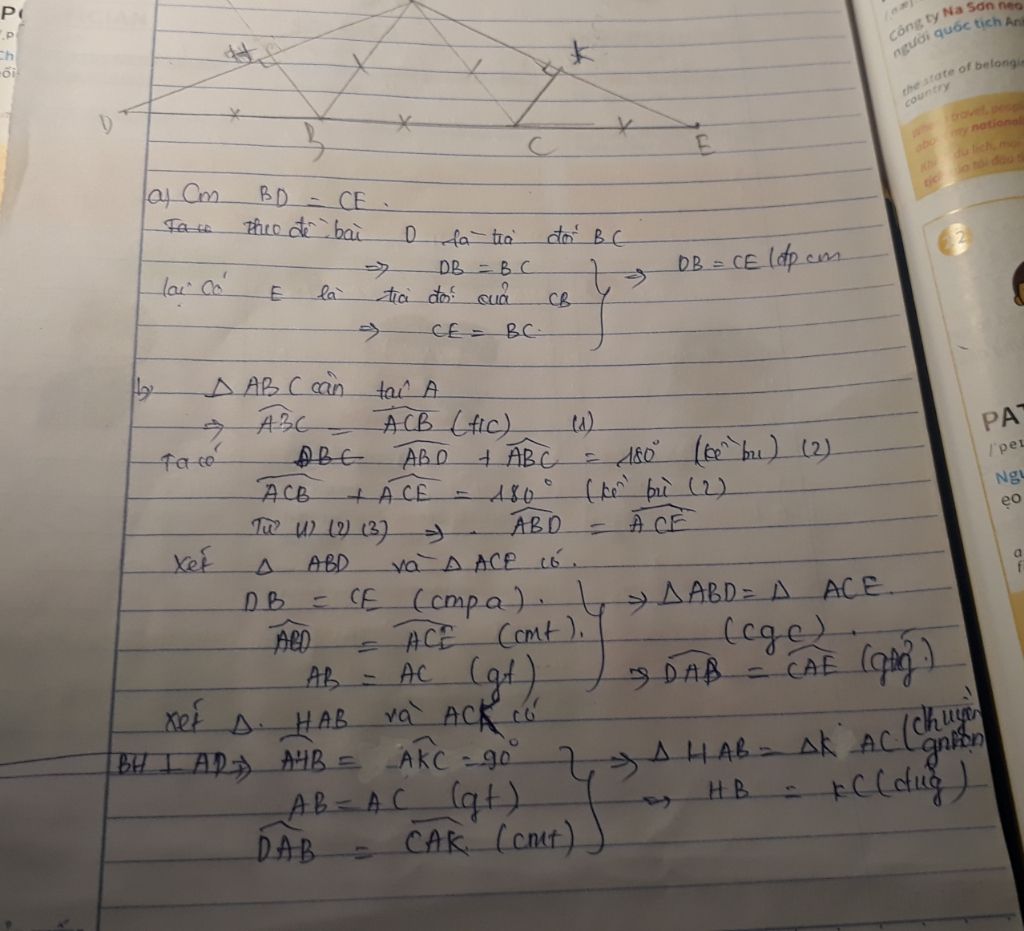 H
K
D
B
C
E
a) Cm BD = CE.
Ta có theo đề bài D là tia đối BC
⇒ DB = BC
lại có E là tia đối của CB
⇒ CE = BC.
⇒ DB = CE (đpcm
b) Δ ABC cân tại A
⇒ ABC = ACB (t/c) (1)
Ta có ABD + ABC = 180° (kề bù) (2)
ACB + ACE = 180° (kề bù (2)
Từ (1) (2) (3) ⇒ ABD = ACE
Xét Δ ABD và Δ ACE có.
DB = CE (cmp a).
ABD = ACE (cmt).
AB = AC (gt)
⇒ Δ ABD = Δ ACE.
(cgc).
⇒ DAB = CAE
Xét Δ. HAB và ACK có
BH ⊥ AD ⇒ AHB = AKC = 90°
AB = AC (gt)
DAB = CAK (cmt)
⇒ Δ HAB = ΔK AC (chuyền
⇒ HB = KC
Công ty Na Sơn neo
người quốc tịch Anh
the state of belongin
country
PAT
/ˈpeɪ
Ngu